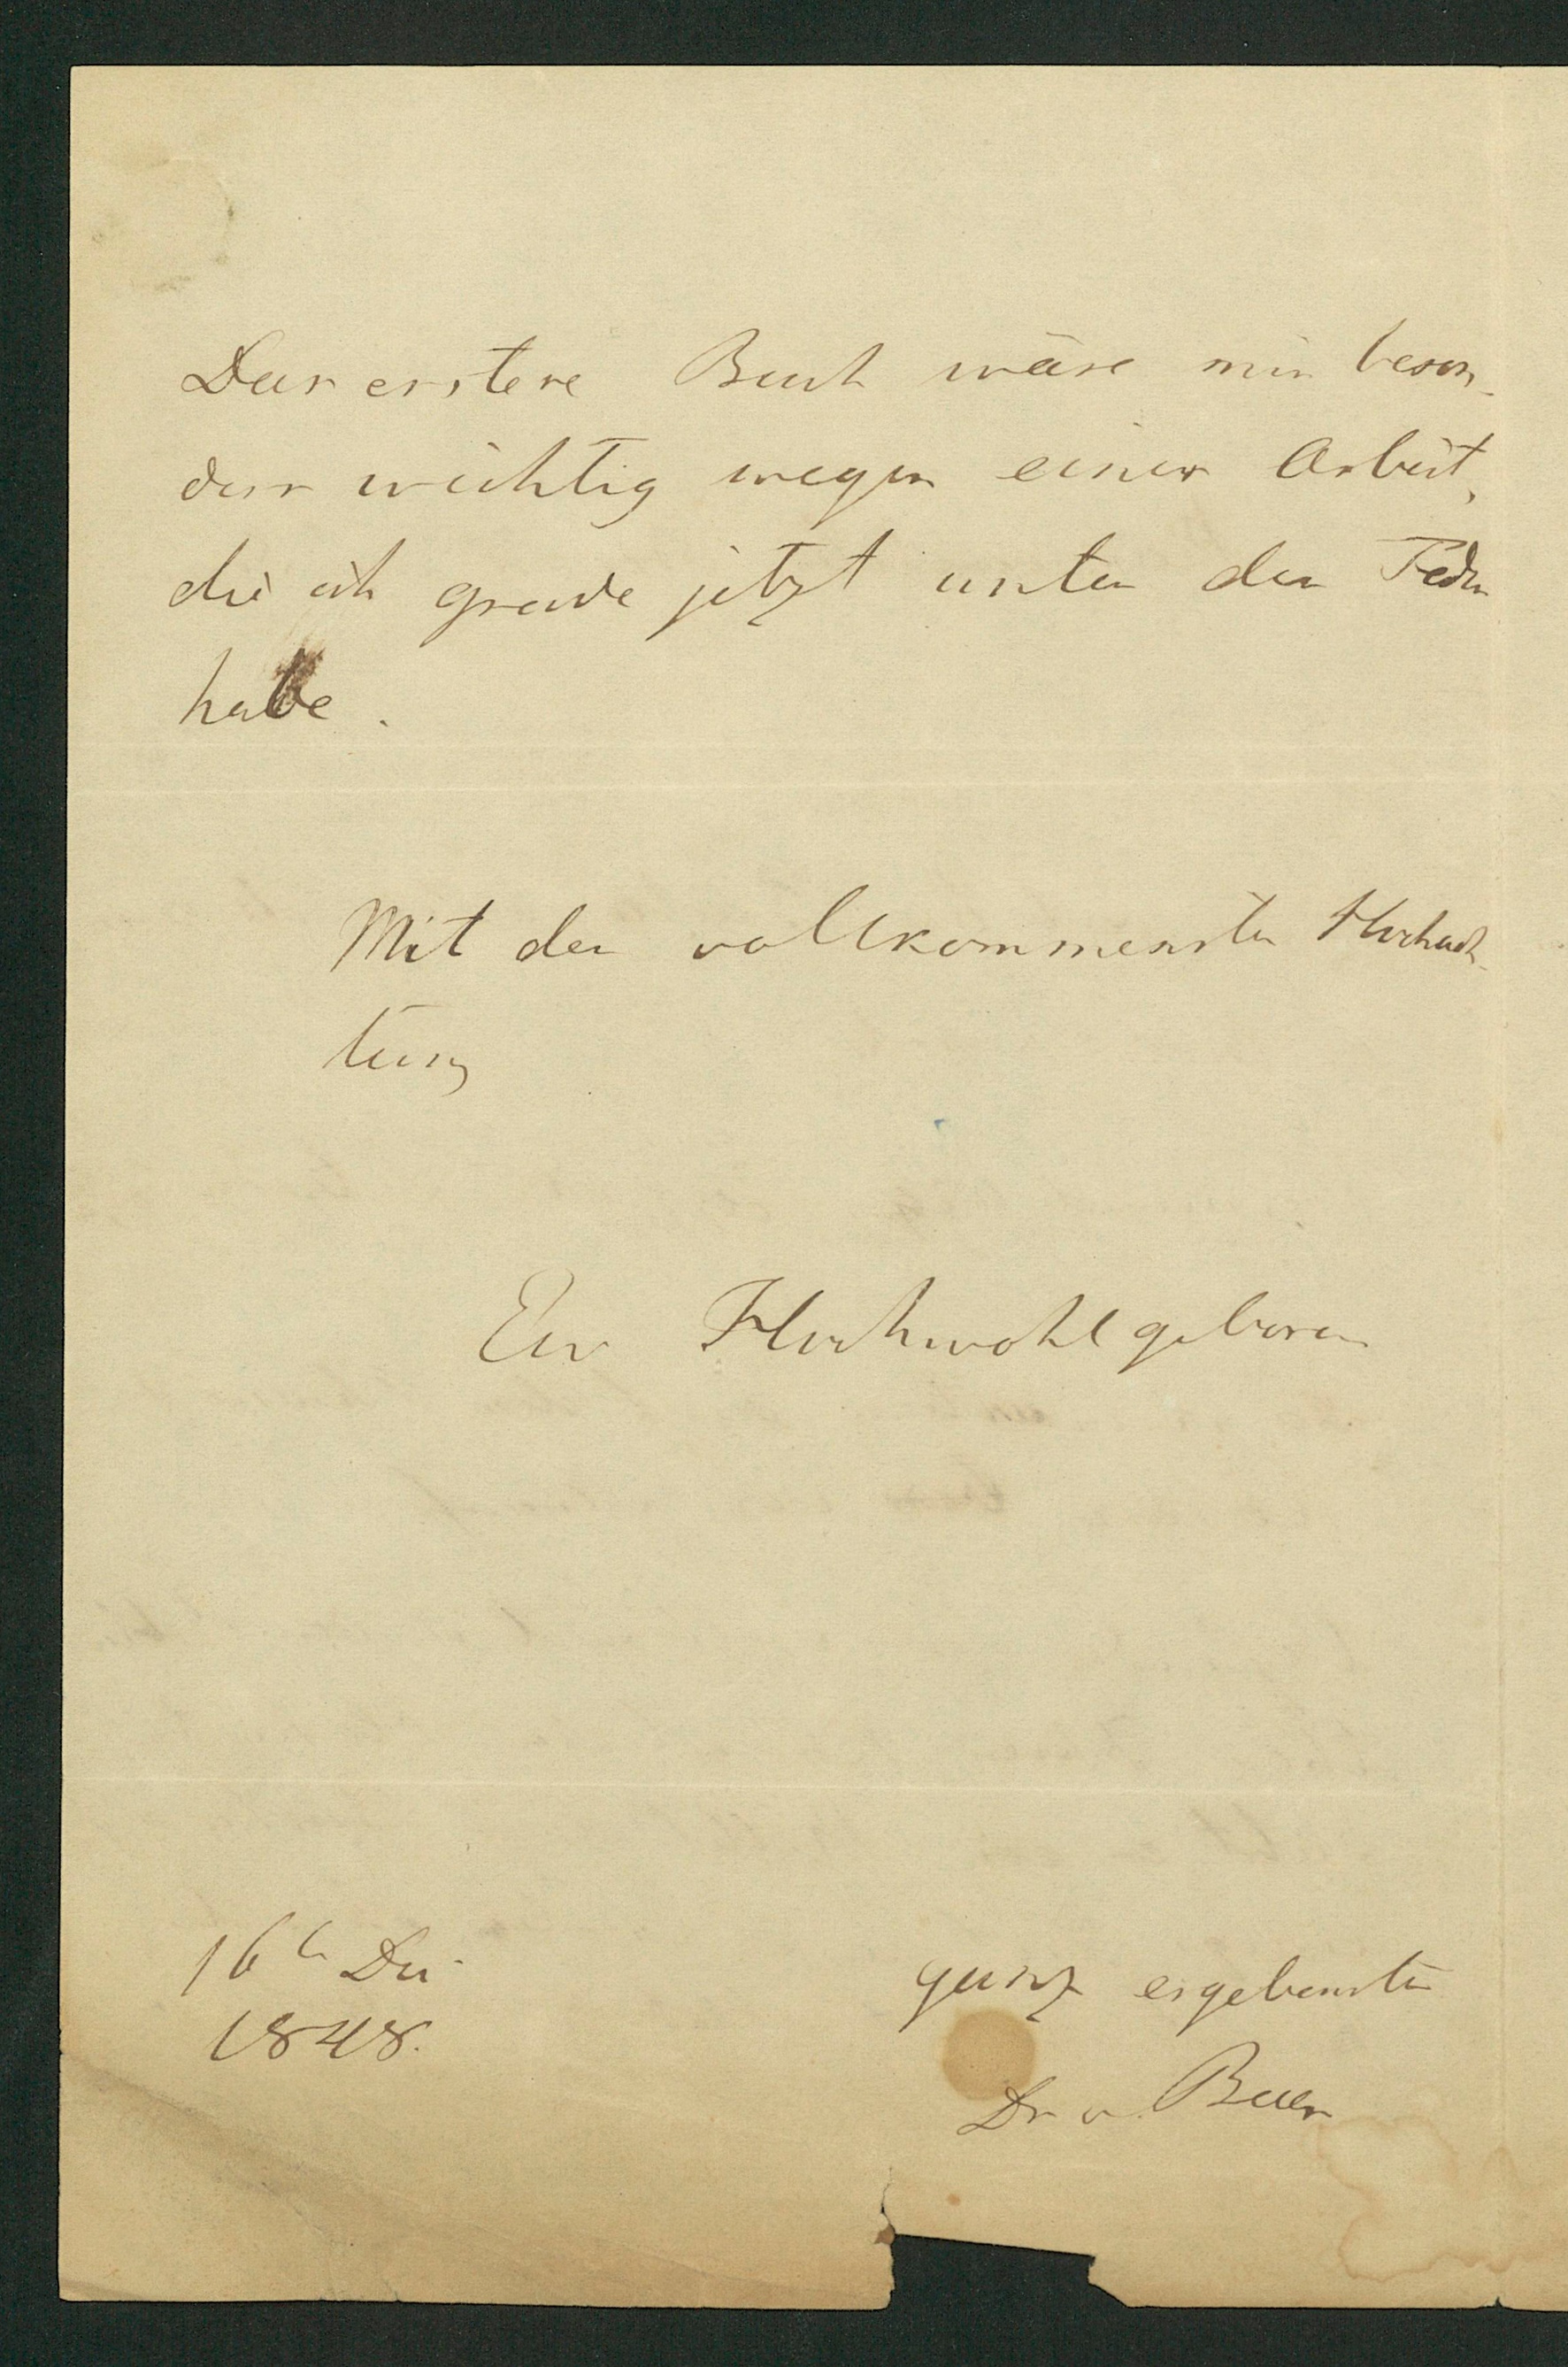 Das erstere Buch wäre mir beson-
ders wichtig wegen einer Arbeit,
die ich grade jetzt unter der Feder
habe.
Mit der vollkommensten Hochach-
tung
Ew Hochwohlgeboren
16t Dec
1848.
ganz ergebenster
Dr v. Baer